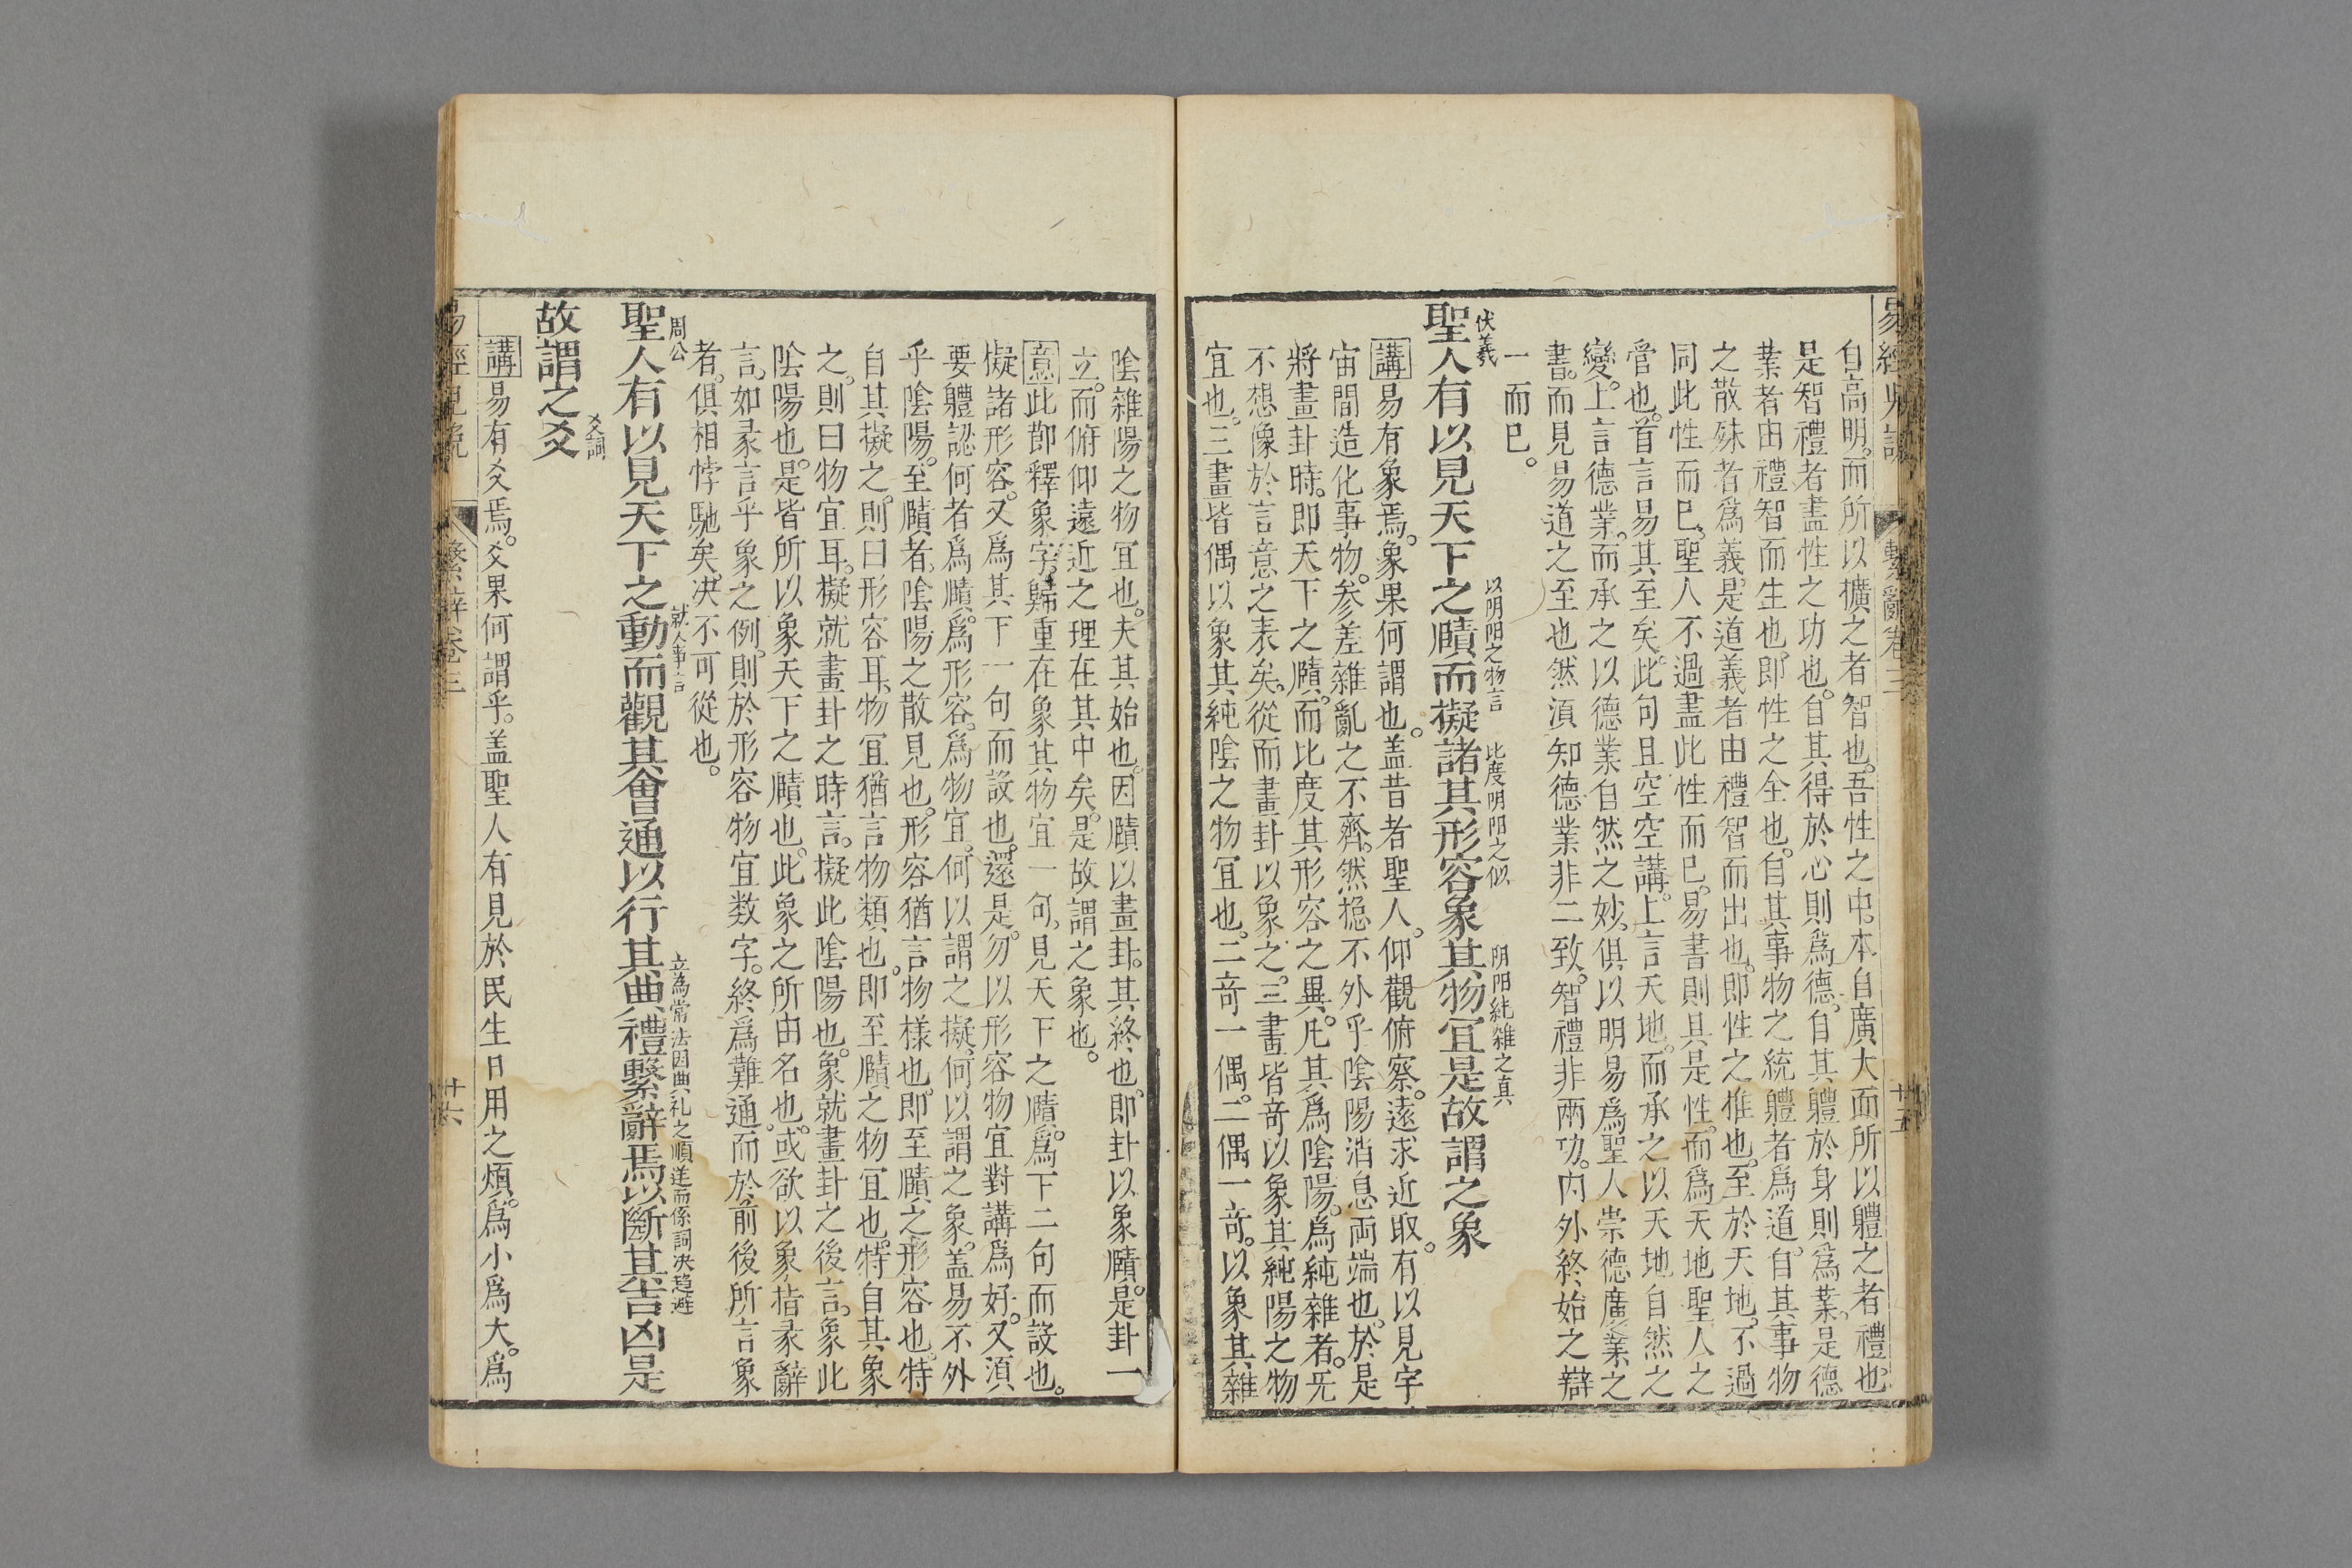 易經兒說 繫辭卷三 廿五
自高明。而所以擴之者智也。吾性之中。本自廣大而所以體之者禮也
是智禮者盡性之功也。自其得於心則爲德。自其體於身則爲業。是德
業者由禮智而生也。卽性之全也。自其事物之統體者爲道。自其事物
之散殊者爲義。是道義者由禮智而出也。卽性之推也。至於天地。不過
同此性而已。聖人不過盡此性而已。易書則具是性。而爲天地聖人之
管也。首言易其至矣。此句且空空講。上言天地。而承之以天地自然之
變。上言德業。而承之以德業自然之妙。俱以明易爲聖人崇德廣業之
書。而見易道之至也然湏知德業非二致。智禮非兩功。内外終始之辯
一而已。
伏羲 以阴阳之物言 比度阴阳之似 阴阳純雜之真
聖人有以見天下之賾而擬諸其形容象其物宜是故謂之象
講易有象焉。象果何謂也。盖昔者聖人。仰觀俯察。遠求近取。有以見宇
宙間造化事物。參差雜亂之不齊。然揔不外乎陰陽消息兩端也。於是
將畫卦時。卽天下之賾。而比度其形容之異。凡其爲陰陽。爲純雜者。旡
不想像於言意之表矣。從而畫卦以象之。三畫皆竒以象其純陽之物
宜也。三畫皆偶以象其純陰之物宜也。二竒一偶。二偶一竒。以象其雜
陰雜陽之物宜也。夫其始也。因賾以畫卦。其終也。卽卦以象賾。是卦一
立。而俯仰遠近之理在其中矣。是故謂之象也。
意此節釋象字。歸重在象其物宜一句。見天下之賾。爲下二句而設也。
擬諸形容。又爲其下一句而設也。還是。勿以形容物宜對講爲好。又湏
要體認何者爲賾。爲形容。爲物宜。何以謂之擬。何以謂之象。盖易不外
乎陰陽。至賾者。陰陽之散見也。形容猶言物樣也。卽至賾之形容也。特
自其擬之。則曰形容耳。物宜猶言物類也。卽至賾之物宜也。特自其象
之。則曰物宜耳。擬就畫卦之時言。擬此陰陽也。象就畫卦之後言。象此
陰陽也。是皆所以象天下之賾也。此象之所由名也。或欲以象指彖辭
言。如彖言乎象之例。則於形容物宜数字。終爲難通。而於前後所言象
者。俱相悖馳矣。决不可從也。
周公 就人事言 立為常法因典礼之順逆而係詞决趋避
聖人有以見天下之動而觀其會通以行其典禮繫辭焉以斷其吉凶是
爻詞
故謂之爻
講易有爻焉。爻果何謂乎。盖聖人有見於民生日用之煩。爲小爲大。爲
易經兒說 繫辭卷三 廿六